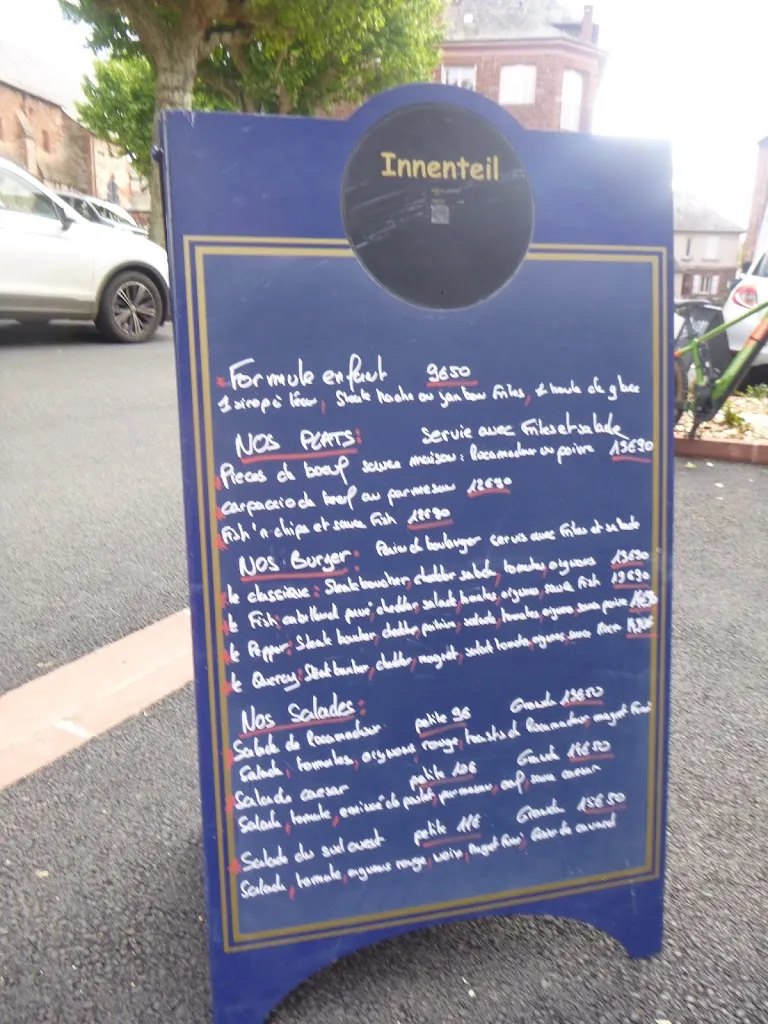 Innenteil
Formule enfant 9€50
1 sirop à l'eau, Steak haché ou jambon Frites, 1 boule de glace
NOS PLATS: Servie avec Frites et salade
Pieces de boeuf sauce maison: Rocamadour ou poivre
carpaccio de boeuf au parmesan 12€90
Fish'n chips et sauce Fish 12€90
Nos Burger: Pain du boulanger servis avec Frites et salade
le classique: Steak boucher, cheddar salade, tomates, oignons
le Fish: cabillaud pané cheddar salade tomates oignons, sauce Fish
le Pepper: Steak boucher, cheddar poitrine, salade, tomates oignons sauce poivre
le Quercy: Steak boucher, cheddar, magret, salade tomate, oignons, sauce
Nos Salades:
Salade de Rocamadour petite 9€ Grande 13€50
Salade, tomates, oignons rouge, toasts de Rocamadour, magret fumé
Salade caesar petite 10€ Grande 14€50
Salade, tomate, émincé de poulet, parmesan, oeuf, sauce caesar
Salade du sud ouest petite 11€ Grande 15€50
Salade, tomate, oignons rouge, noix, magret fumé, de canard